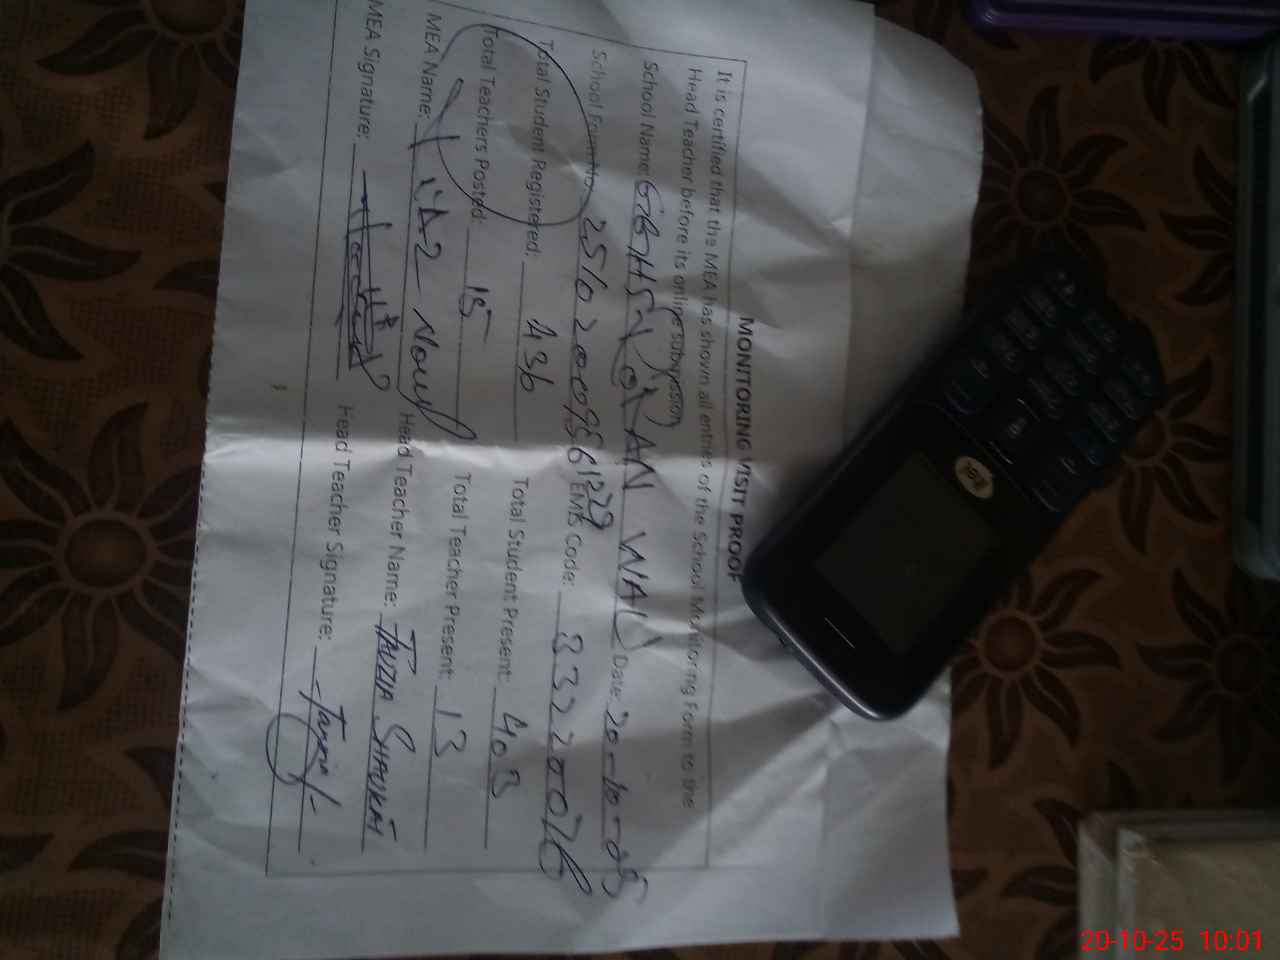 MONITORING VISIT PROOF
It is certified that the MEA has shown all entries of the School Monitoring Form to the
Head Teacher before its online submission
School Name: GGHS WALI Date: 20-10-25
School Form No. EMIS Code: 33220076
Total Student Registered: 436 Total Student Present: 403
Total Teachers Posted: 15 Total Teacher Present: 13
MEA Name: Head Teacher Name: TAUZIA SHAUKAT
MEA Signature: Head Teacher Signature:
20-10-25 10:01